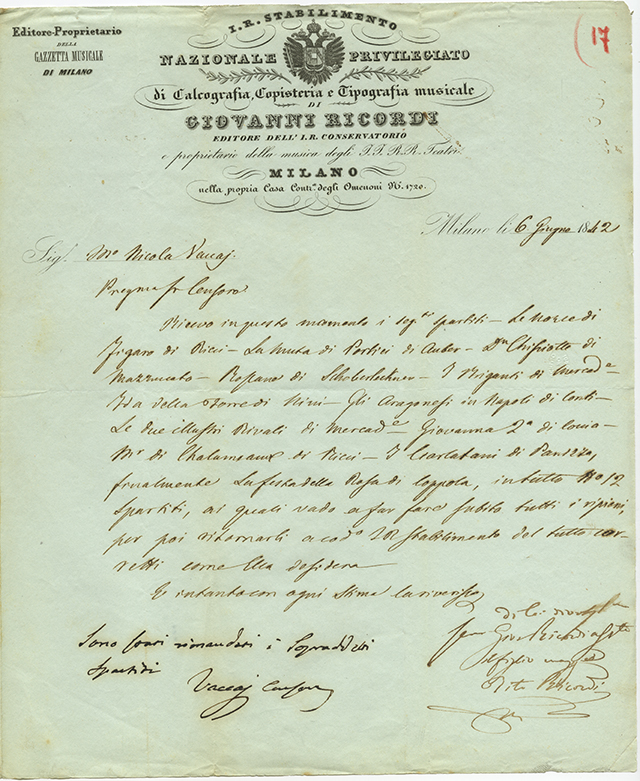 Editore-Proprietario
DELLA
GAZZETTA MUSICALE
DI MILANO
I. R. STABILIMENTO
NAZIONALE PRIVILEGIATO
di Calcografia, Copisteria e Tipografia musicale
DI
GIOVANNI RICORDI
EDITORE DELL' I. R. CONSERVATORIO
e proprietario della musica degli I. I. R. R. Teatri
MILANO
nella propria Casa Contr.ª degli Omenoni N.º 1720.
17
Milano li 6 Giugno 1842
Sig.r Mro Nicola Vaccaj.
Censore
Ricevo in questo momento i seg.ti spartiti — Le nozze di
Figaro di Ricci — La Muta di Portici di Auber — Dn Chisciotte di
Mazzucato — Rossane di Schoberlechner — I Briganti di Mercad.e
Ida della Torre di Nini — Gli Aragonesi in Napoli di Conti —
Le due illustri Rivali di Mercad.e Giovanna 2.a di Coccia —
Mr di Chalumeaux di Ricci — I Ciarlatani di Panizza,
finalmente La festa della Rosa di Coppola, in tutto No 12
Spartiti, ai quali vado a far fare subito tutti i ripieni,
per poi ritornarli a cod.o IR Stabilimento del tutto cor-
retti come Ella desidera
E intanto con ogni stima la riverisco
di Lei
Giov. Ricordi
Tito Ricordi
Sono stati rimandati i Sopradetti
Spartiti
Vaccaj Censore